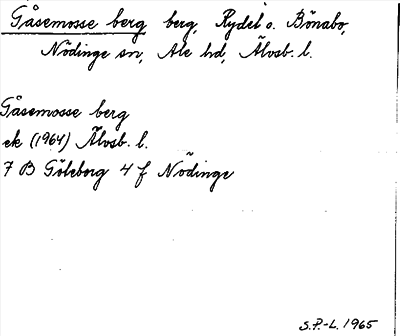 Gåsemosse berg berg, Rydet o. Bönabo,
Nödinge sn, Ale hd, Älvsb. l.
Gåsemosse berg
ek (1964) Älvsb. l.
7 B Göteborg 4 f Nödinge
S.P.-L. 1965